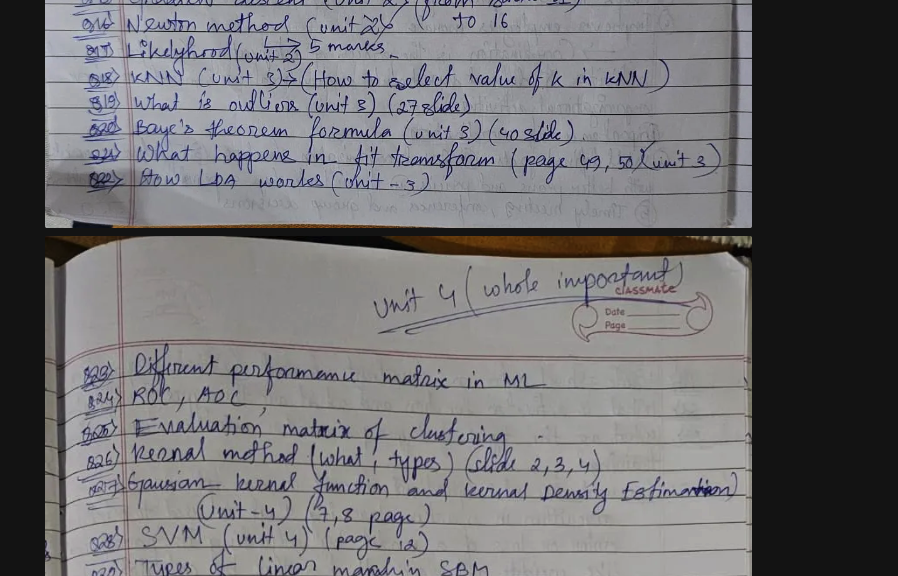 Q16> Newton method (unit 2) to 16
Q17> Likelyhood (unit 2) → 5 marks
Q18> KNN (unit 3) → (How to select value of k in KNN)
Q19> What is outliers (unit 3) (27 slide)
Q20> Baye's theorem formula (unit 3) (40 slide)
Q21> What happens in fit transform (page 49, 50) (unit 3)
Q22> How LDA workes (Unit-3)
Unit 4 (whole important)
CLASSMATE
Date
Page
Q23> Different performance matrix in ML
Q24> ROC, AOC,
Q25> Evaluation matrix of clustering
Q26> Kernal method (what, types) (slide 2, 3, 4)
Q27> Gaussian kernal function and kernal Density Estimation)
(Unit-4) (7, 8 page)
Q28> SVM (unit 4) (page 12)
Types of linear SBM